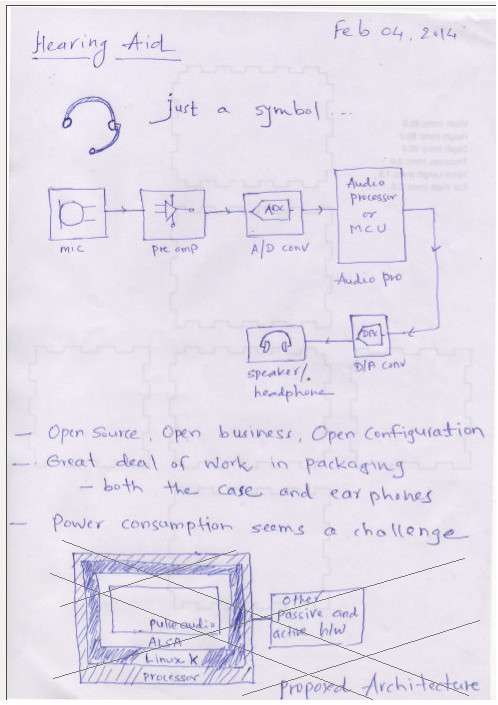 Hearing Aid
Feb 04, 2014
just a symbol...
MIC
pre amp
ADC
A/D conv
Audio
processor
or
MCU
Audio pro
DAC
D/A conv
speaker/.
headphone
— Open Source, Open business, Open Configuration
— Great deal of work in packaging
— both the case and ear phones
— Power consumption seems a challenge
pulse audio
ALSA
Linux K
processor
Other
passive and
active h/w
proposed Architecture